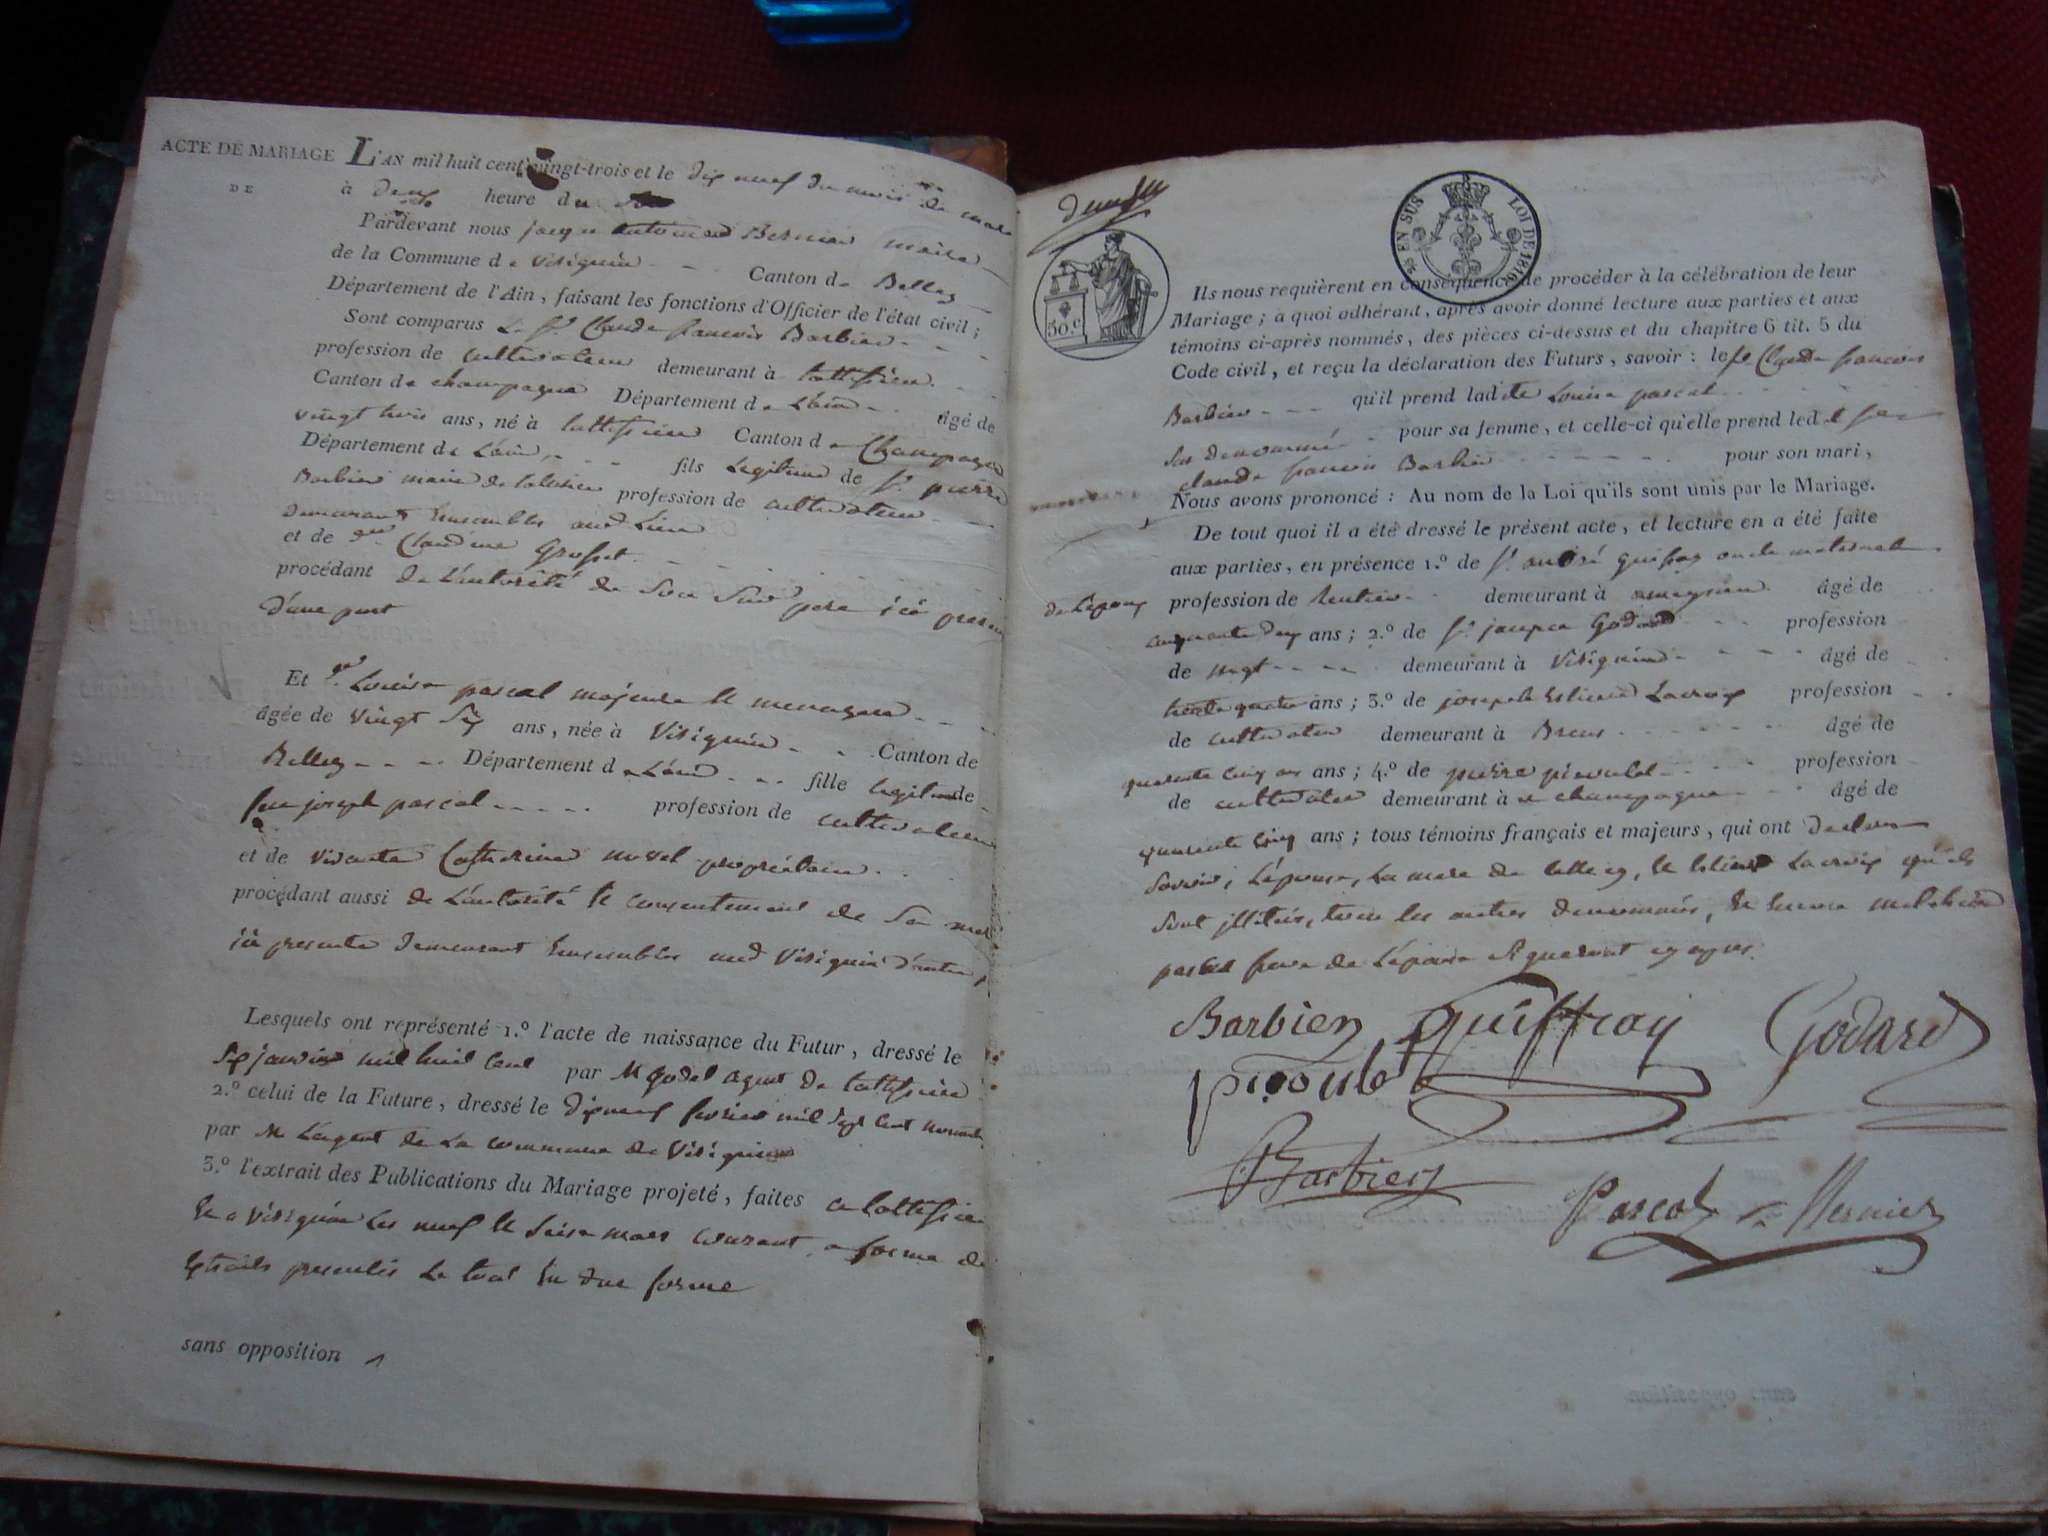 ACTE DE MARIAGE L'AN mil huit cent vingt-trois et le dix neuf du mois de mars
DE à deux heure du
Pardevant nous jacque Bernier maire
de la Commune de Virignin Canton de Belley
Département de l'Ain, faisant les fonctions d'Officier de l'état civil;
Sont comparus Le Sr. Claude francois Barbier
profession de cultivateur demeurant à
Canton de champagne Département de L'ain âgé de
vingt trois ans, né à Canton de Champagne
Département de L'ain fils Legitime de Sr. pierre
Barbier maire de profession de cultivateur
demeurant Ensembles aud. Lieu
et de Claudine Grosset
procédant de L'autorité de Son père icé present
d'une part
Et Louise pascal majeure
âgée de vingt Six ans, née à Virignin Canton de
Belley Département de L'ain fille legitime de
feu joseph pascal profession de cultivateur
et de vivante Catherine propriétaire
procédant aussi de L'autorité & consentement de Sa mere
icé presente demeurant Ensembles aud Virignin d'autre
Lesquels ont représenté 1.º l'acte de naissance du Futur, dressé le
Six janvier mil huit Cent par M agent de
2.º celui de la Future, dressé le dixneuf fevrier mil Sept Cent
par M L'agent de La commune de Virignin
3.º l'extrait des Publications du Mariage projeté, faites a
& a Virignin Les neuf & Seise mars courant, a forme de
Extraits presentés Le tout En due forme
sans opposition
50.c
EN SUS LOI DE 1816
Ils nous requièrent en conséquence de procéder à la célébration de leur
Mariage; à quoi adhérant, après avoir donné lecture aux parties et aux
témoins ci-après nommés, des pièces ci-dessus et du chapitre 6 tit. 5 du
Code civil, et reçu la déclaration des Futurs, savoir: le Sr Claude francois
Barbier qu'il prend ladite Louise pascal
Sus denommé pour sa femme, et celle-ci qu'elle prend led
claude francois Barbier pour son mari,
Nous avons prononcé: Au nom de la Loi qu'ils sont unis par le Mariage.
De tout quoi il a été dressé le présent acte, et lecture en a été faite
aux parties, en présence 1.º de Sr. andré oncle maternel
de L'epoux profession de Rentier demeurant à âgé de
cinquante deux ans; 2.º de Sr. Godard profession
de demeurant à Virignin âgé de
trente quatre ans; 3.º de joseph Lacroix profession
de cultivateur demeurant à Brens âgé de
quarante Cinq ans ans; 4.º de pierre profession
de cultivateur demeurant à champagne âgé de
quarante Cinq ans; tous témoins français et majeurs, qui ont declaré
Savoir; L'épouse, La mere de celle cy, & Lacroix qu'ils
Sont illitérés, tous les autres denommés, & Encore
pascal frere de L'épouse
Barbier Guiffray Godard
picoulet
Barbier
Pascal Bernier